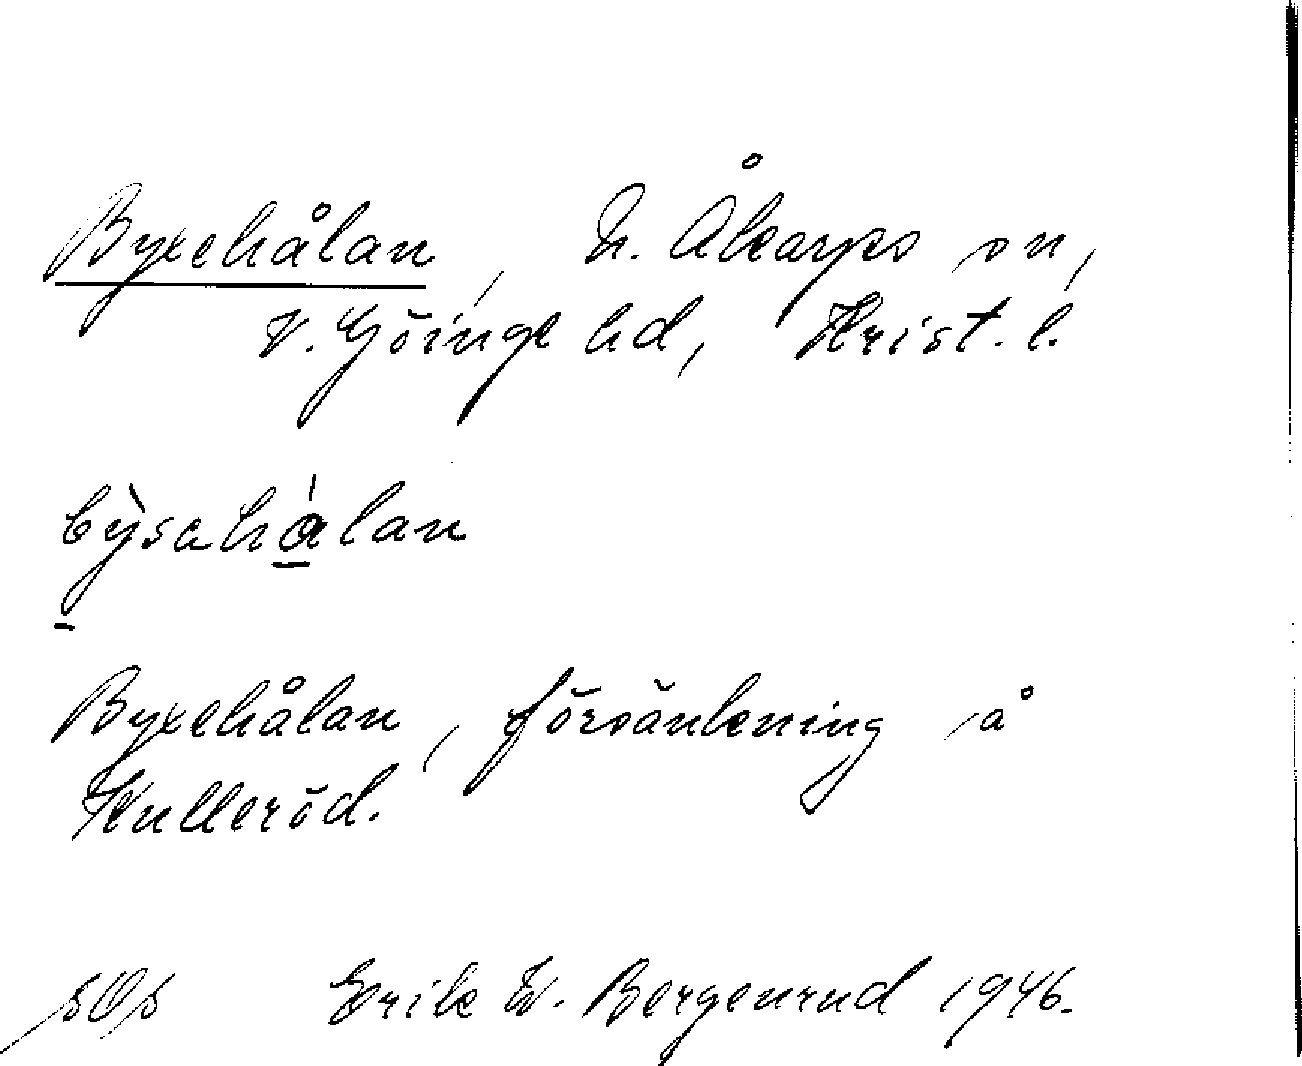 Byxehålan, N. Åkarps sn,
V. Göinge hd, Krist. l.
býsahålan
Byxehålan, försänkning å
Kulleröd.
Erik W. Bergenrud 1946.